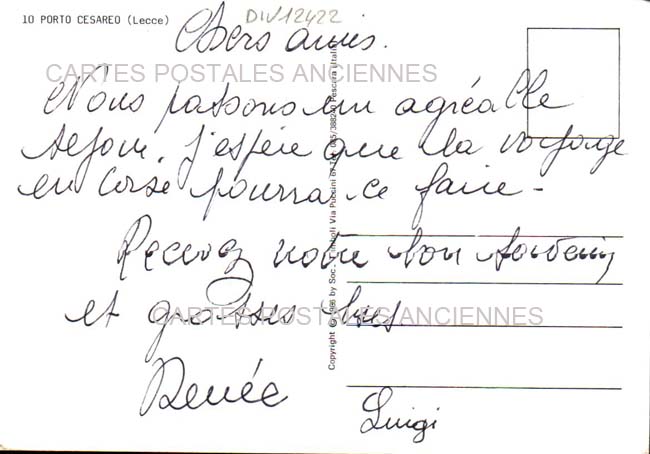 10 PORTO CESAREO (Lecce)
DIV12422
Chers amis.
CARTES POSTALES ANCIENNES
Nous passons un agréable
séjour, j'espère que la voyage
en Corse pourra ce faire -
Recevez notre bon souvenir
et grosses bises
CARTES POSTALES ANCIENNES
Renée
Luigi
Copyright © by Soc. Via Puccini Pescara (Italia)